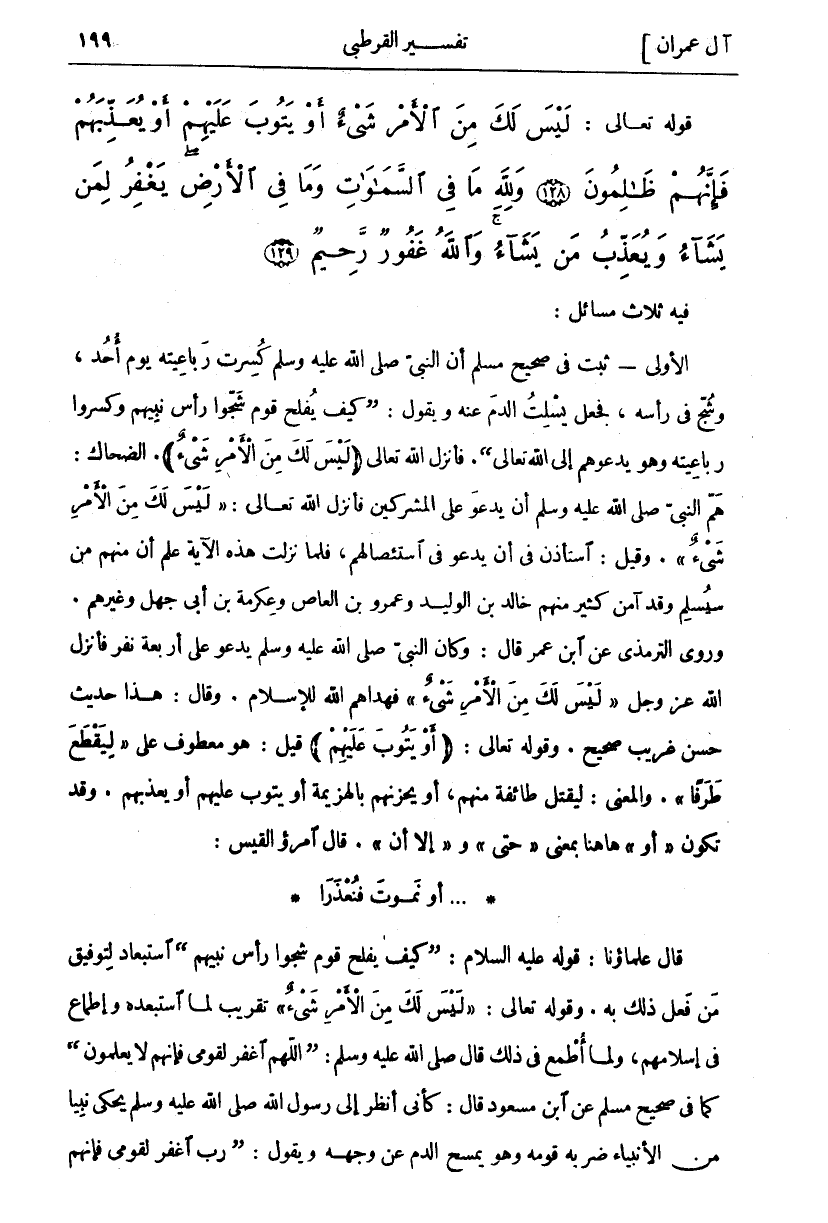 آل عمران ] تفسير القرطبى ١٩٩
قوله تعـالى : لَيْسَ لَكَ مِنَ ٱلْأَمْرِ شَىْءٌ أَوْ يَتُوبَ عَلَيْهِمْ أَوْ يُعَـذِّبَهُمْ
فَإِنَّهُـمْ ظَـٰلِمُونَ ﴿١٢٨﴾ وَلِلَّهِ مَا فِى ٱلسَّمَـٰوَٰتِ وَمَا فِى ٱلْأَرْضِۚ يَغْفِرُ لِمَن
يَشَآءُ وَيُعَذِّبُ مَن يَشَآءُۚ وَٱللَّهُ غَفُورٌ رَّحِيمٌ ﴿١٢٩﴾
فيه ثلاث مسائل :
الأولى — ثبت فى صحيح مسلم أن النبىّ صلى الله عليه وسلم كُسِرت رَباعِيته يوم أُحُد ،
وشُجّ فى رأسه ، فجعل يَسْلِتُ الدمَ عنه ويقول : ”كيف يُفلح قوم شَجّوا رأس نبِيهم وكسروا
رباعِيته وهو يدعوهم إلى الله تعالى“. فأنزل الله تعالى ﴿لَيْسَ لَكَ مِنَ الْأَمْرِ شَىْءٌ﴾. الضحاك :
هَمّ النبىّ صلى الله عليه وسلم أن يدعوَ على المشركين فأنزل الله تعـالى : « لَيْسَ لَكَ مِنَ الْأَمْرِ
شَىْءٌ » . وقيل : ٱستأذن فى أن يدعو فى ٱستئصالهم ، فلما نزلت هذه الآية علم أن منهم من
سيُسلِم وقد آمن كثير منهم خالد بن الوليـد وعمرو بن العاص وعِكرمة بن أبى جهل وغيرهم .
وروى الترمذى عن ٱبن عمر قال : وكان النبىّ صلى الله عليه وسلم يدعو على أربعة نفر فأنزل
الله عز وجل « لَيْسَ لَكَ مِنَ الْأَمْرِ شَىْءٌ » فهداهم الله للإسـلام . وقال : هـذا حديث
حسن غريب صحيح . وقوله تعالى : ﴿ أَوْ يَتُوبَ عَلَيْهِمْ ﴾ قيل : هو معطوف على « لِيَقْطَعَ
طَرَفًا » . والمعنى : ليقتل طائفة منهم، أو يحزنهم بالهزيمة أو يتوب عليهم أو يعذبهم . وقد
تكون « أو » هاهنا بمعنى « حتى » و « إلا أن » . قال ٱمرؤ القيس :
* ... أو نَمـوتَ فنُعْذَرَا *
قال علماؤنا : قوله عليه السلام : ”كيف يفلح قوم شجوا رأس نبيهم“ ٱستبعاد لِتوفيق
مَن فَعل ذلك به . وقوله تعالى : «لَيْسَ لَكَ مِنَ الْأَمْرِ شَىْءٌ» تقريب لمـا ٱستبعده وإطماع
فى إسلامهم، ولمـا أُطْمع فى ذلك قال صلى الله عليه وسلم : ”اللّهم ٱغفر لقومى فإنهم لا يعلمون“
كما فى صحيح مسلم عن ٱبن مسعود قال : كأنى أنظر إلى رسول الله صلى الله عليه وسلم يحكى نبِيا
من الأنبياء ضربه قومه وهو يمسح الدم عن وجهـه ويقول : ”رب ٱغفر لقومى فإنهم